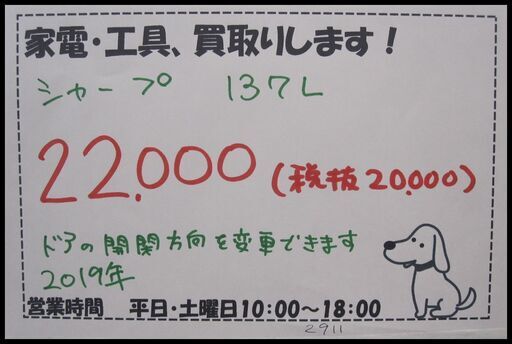 家電・工具、買取りします!
シャープ 137L
22.000 (税抜20.000)
ドアの開関方向を変更できます
2019年
営業時間 平日・土曜日10:00～18:00
2911